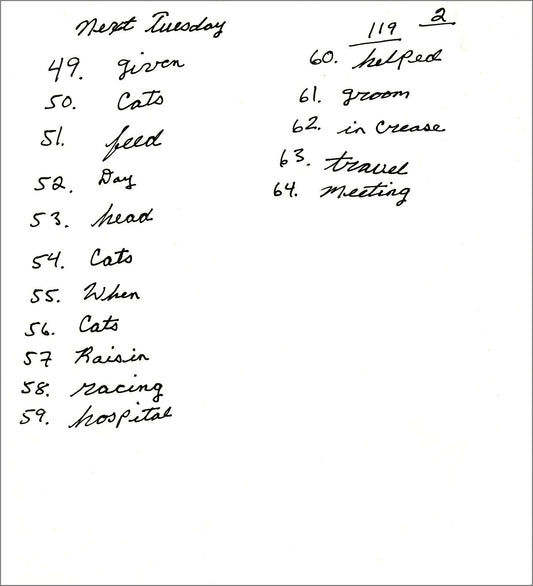 Next Tuesday
119 2
49. given
50. Cats
51. feed
52. Day
53. head
54. Cats
55. When
56. Cats
57 Raisin
58. racing
59. hospital
60. helped
61. groom
62. in crease
63. travel
64. Meeting